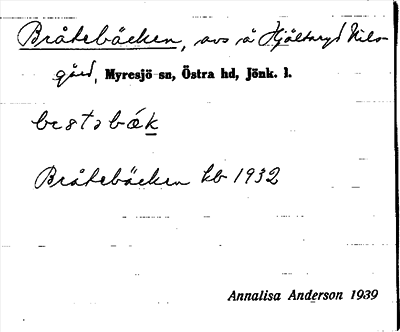 Bråtebäcken, avs å Hjältaryd Nils-
gård, Myresjö sn, Östra hd, Jönk. l.
Bråtebäcken kb 1932
Annalisa Anderson 1939